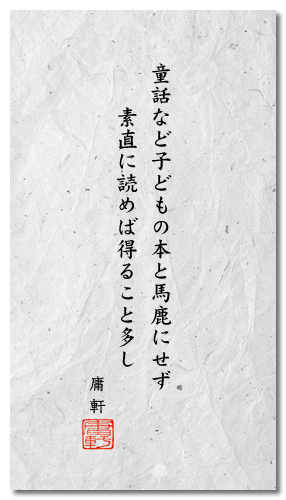 童話など子どもの本と馬鹿にせず
素直に読めば得ること多し
庸軒